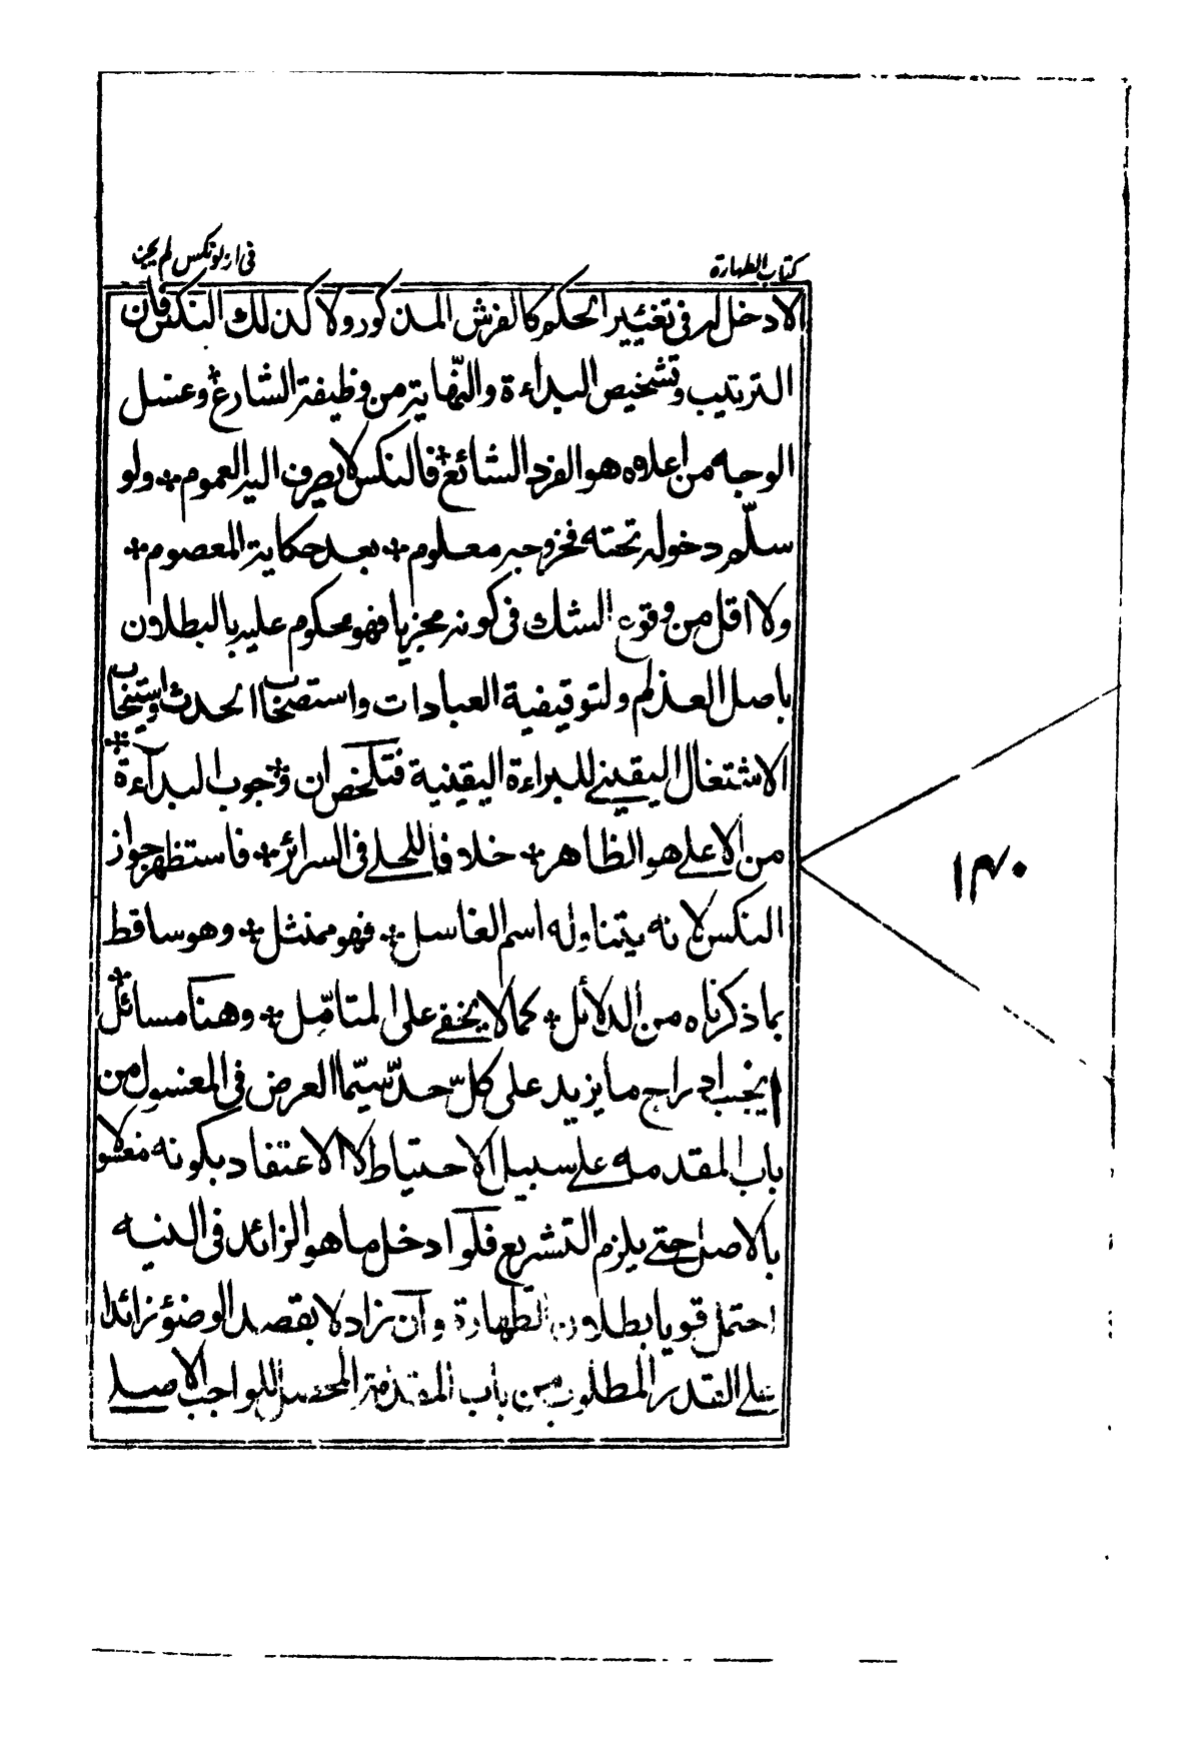 كتاب الطهارة
في انه لو نكس لم يجز
الا دخل له في تغيير الحكم كالفرش المذكور ولا كذلك النكس فان
الترتيب وتشخيص البداءة والنهاية من وظيفة الشارع وغسل
الوجه من اعلاه هو الفرد الشائع فالنكس لا يصرف اليه العموم ولو
سلم دخوله تحته فخروجه معلوم بعد حكاية المعصوم
ولا اقل من وقوع الشك في كونه مجزيا فهو محكوم عليه بالبطلان
باصل العدم ولتوقيفية العبادات واستصحاب الحدث واستصحاب
الاشتغال اليقيني للبراءة اليقينية فتلخص ان وجوب البدآءة
من الاعلى هو الظاهر خلافا للحلي في السرائر فاستظهر جواز
النكس لانه يتناوله اسم الغاسل فهو ممتثل وهو ساقط
بما ذكرناه من الدلائل كما لا يخفى على المتامّل وهنا مسائل
ا يجب ادراج ما يزيد على كلّ حدّ سيّما العرض في المغسول من
باب المقدمه على سبيل الاحتياط لا الاعتقاد بكونه مغسولا
بالاصل حتى يلزم التشريع فلو ادخل ما هو الزائد في النيه
احتمل قويا بطلان الطهارة وان زاد لا بقصد الوضوء زائدا
على القدر المطلوب من باب المقدمة المحصل للواجب الاصلي
١٣٠